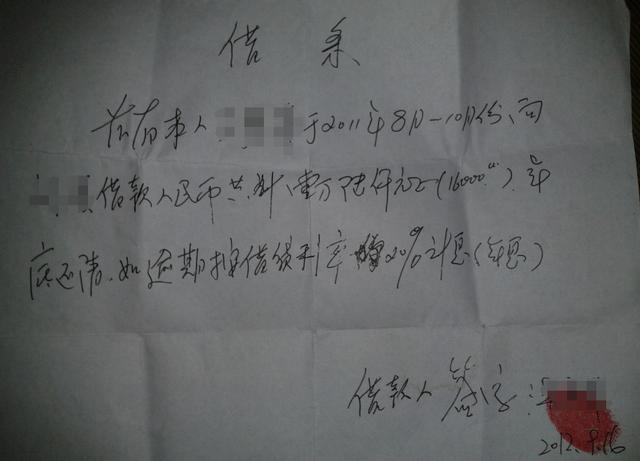 借条
兹有本人于2011年8月-10月份、向
借款人民币共计壹万陆仟元正(16000.00)、年
底还清、如逾期按借贷利率20%计息(年息)
借款人 签字:
2012.9.16